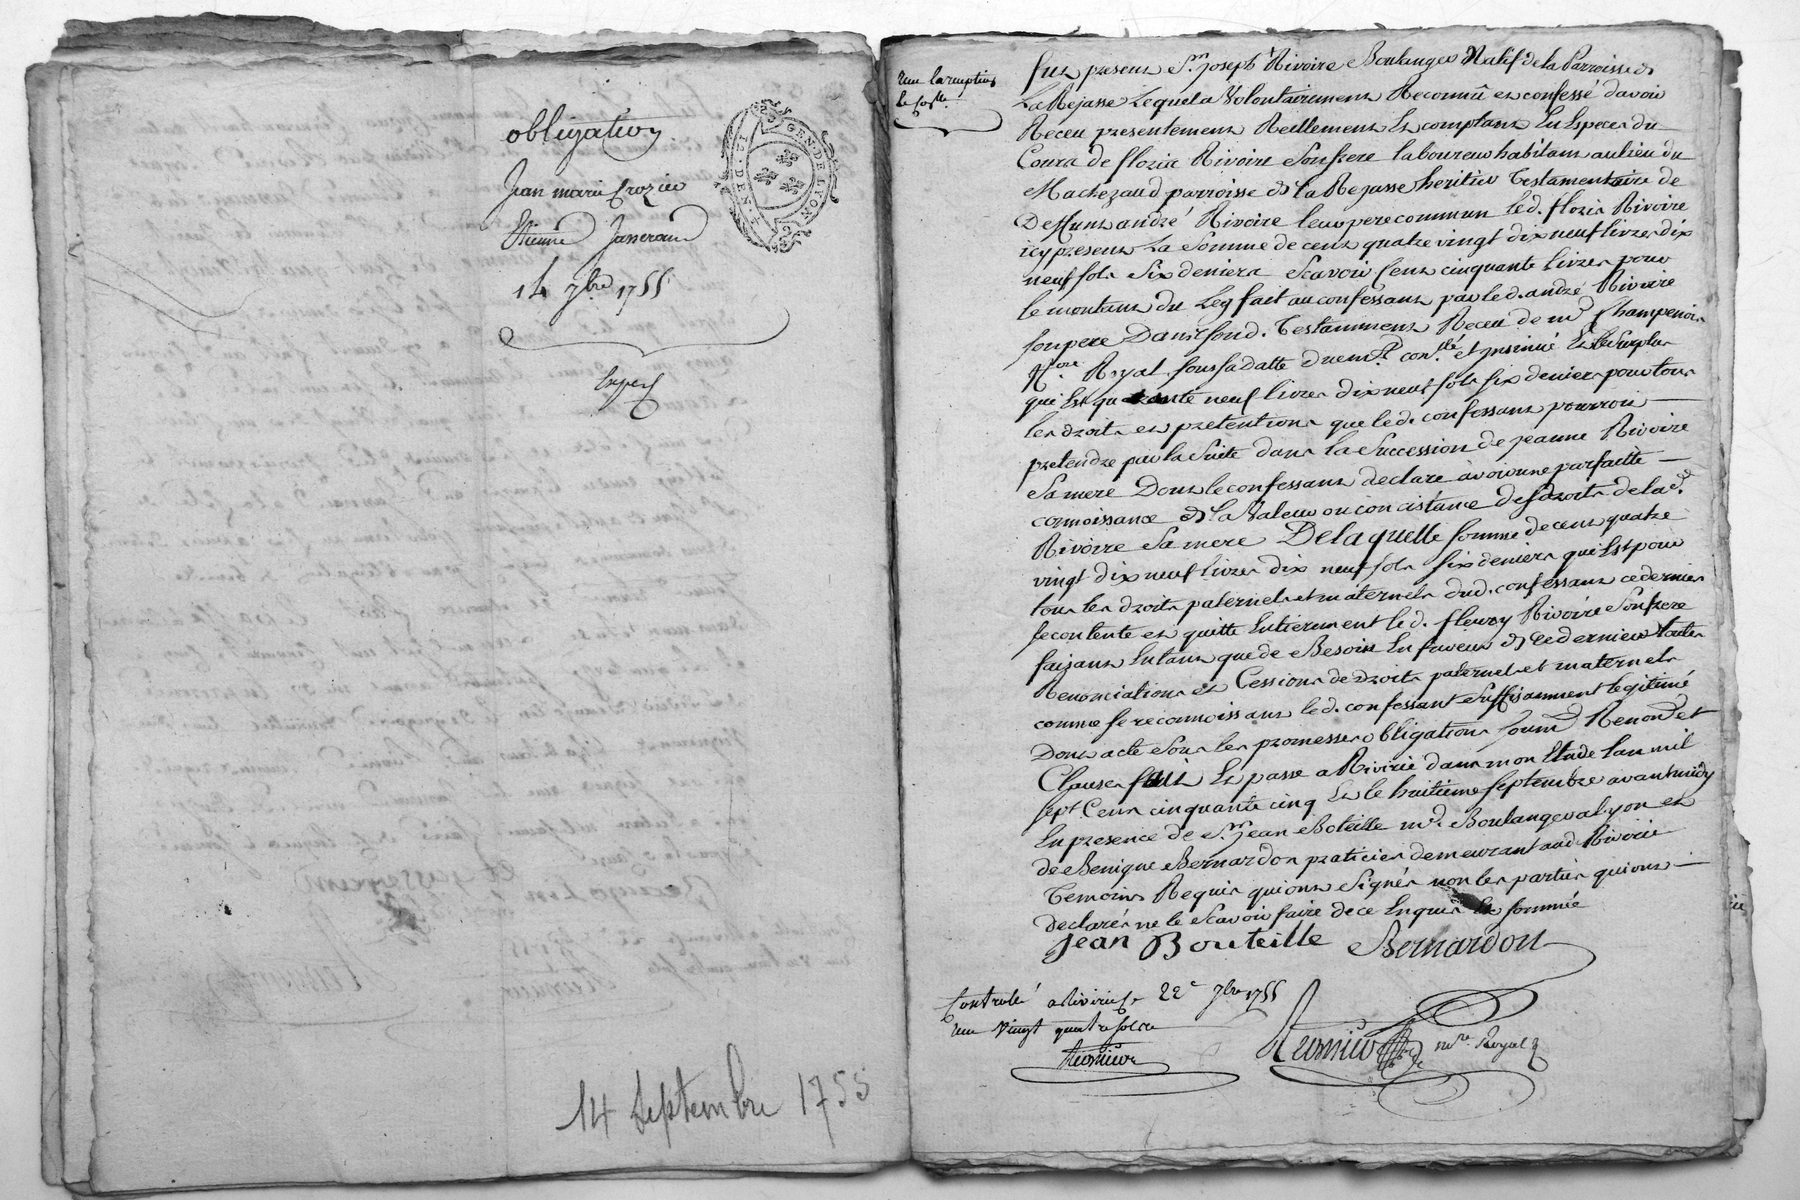 obligation
Jean marie Crozier
Etienne Jasserand
14 7bre 1755
GEN. DE LYON
2. DEN. UI
14 Septembre 1755
la remption
fut present Sr. Joseph Rivoire Boulanger Natif de la Parroisse de
La Rejasse Lequel a Volontairement Reconnû et confessé d'avoir
Receu presentement Reellement Et comptant En Especes du
Cours de flozie Rivoire Son frere laboureur habitant au lieu du
Machezaud parroisse de la Rejasse heritier Testamentaire de
Deffunt andré Rivoire leur pere commun led. flozie Rivoire
icy present La Somme de cent quatre vingt dix neuf livres dix
neuf sols Six deniers Scavoir Cent cinquante livres pour
le montant du Leg fait au confessant par led. andré Rivoire
son pere Dans sond. Testamment Receu de me. Champenois
Nore. Royal sous sa datte duemt. conllé. et insinué Et le Surplus
qui Est quarante neuf livres dix neuf sols six deniers pour tous
les droits et pretentions que led. confessant pourroit
pretendre par la Suite dans la Succession de jeanne Rivoire
Sa mere Dont le confessant declare avoir une parfaitte
connoissance de la Valeur ou concistance des droits de lad.
Rivoire Sa mere De laquelle somme de cent quatre
vingt dix neuf livres dix neuf sols six deniers qui Est pour
tous les droits paternels et maternels dud. confessant ce dernier
se contente et quitte Entierement led. fleury Rivoire Son frere
faizant En tant que de Besoin En faveur de ce dernier toutes
Renonciations et Cessions de droits paternels et maternels
comme se reconnoissant led. confessant suffisamment legitimé
Dont acte Sous les promesses obligations soumd. Renond. et
Clauses fait Et passé a Riverie dans mon Etude L'an mil
sept Cent cinquante cinq Et le huitieme septembre avant midy
En presence de Sr. jean Boteille md. Boulanger a lyon et
de Benigne Bernardon praticien demeurant aud. Riverie
Temoins Requis qui ont Signés non les parties qui ont
declarés ne le Scavoir faire de ce Enquis Et sommé
Jean Bouteille Bernardon
Controllé a Riverie le 22e 7bre 1755
Vingt quatre sols
nre. Royal